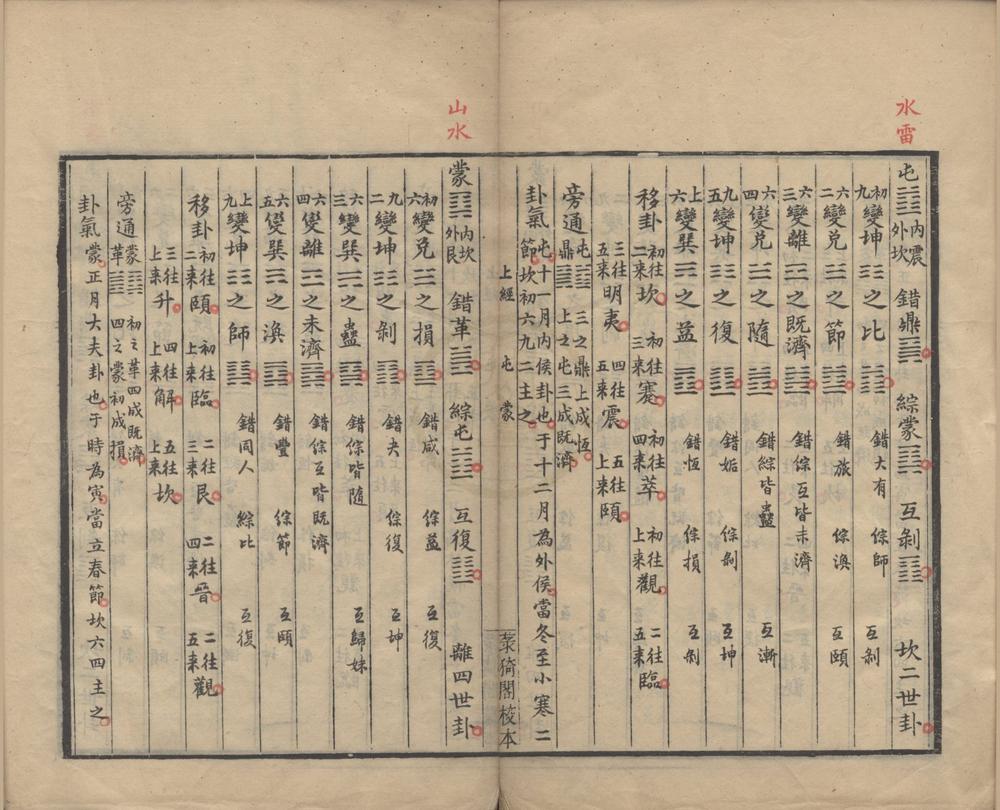 水雷
屯䷂內震外坎 錯鼎䷱ 綜蒙䷃ 互剝䷖ 坎二世卦
初九變坤☷之比䷇ 錯大有 綜師 互剝
六二變兌☱之節䷻ 錯旅 綜渙 互頤
六三變離☲之既濟䷾ 錯綜互皆未濟
六四變兌☱之隨䷐ 錯綜皆蠱 互漸
九五變坤☷之復䷗ 錯姤 綜剝 互坤
上六變巽☴之益䷩ 錯恆 綜損 互剝
移卦 初往二來坎 初往三來蹇 初往四來萃 初往上來觀 二往五來臨
三往五來明夷 四往五來震 五往上來頤
旁通 屯䷂鼎䷱ 三之鼎上成恆 上之屯三成既濟
卦氣 屯十一月內侯卦也于十二月為外侯當冬至小寒二
節坎初六九二主之
上經 屯 蒙
菉猗閣校本
山水
蒙䷃內坎外艮 錯革䷰ 綜屯䷂ 互復䷗ 離四世卦
初六變兌☱之損䷨ 錯咸 綜益 互復
九二變坤☷之剝䷖ 錯夬 綜復 互坤
六三變巽☴之蠱䷑ 錯綜皆隨 互歸妹
六四變離☲之未濟䷿ 錯綜互皆既濟
六五變巽☴之渙䷺ 錯豐 綜節 互頤
上九變坤☷之師䷆ 錯同人 綜比 互復
移卦 初往二來頤 初往上來臨 二往三來艮 二往四來晉 二往五來觀
三往上來升 四往上來解 五往上來坎
旁通 蒙䷃革䷰ 初之革四成既濟 四之蒙初成損
卦氣 蒙正月大夫卦也于時為寅當立春節坎六四主之